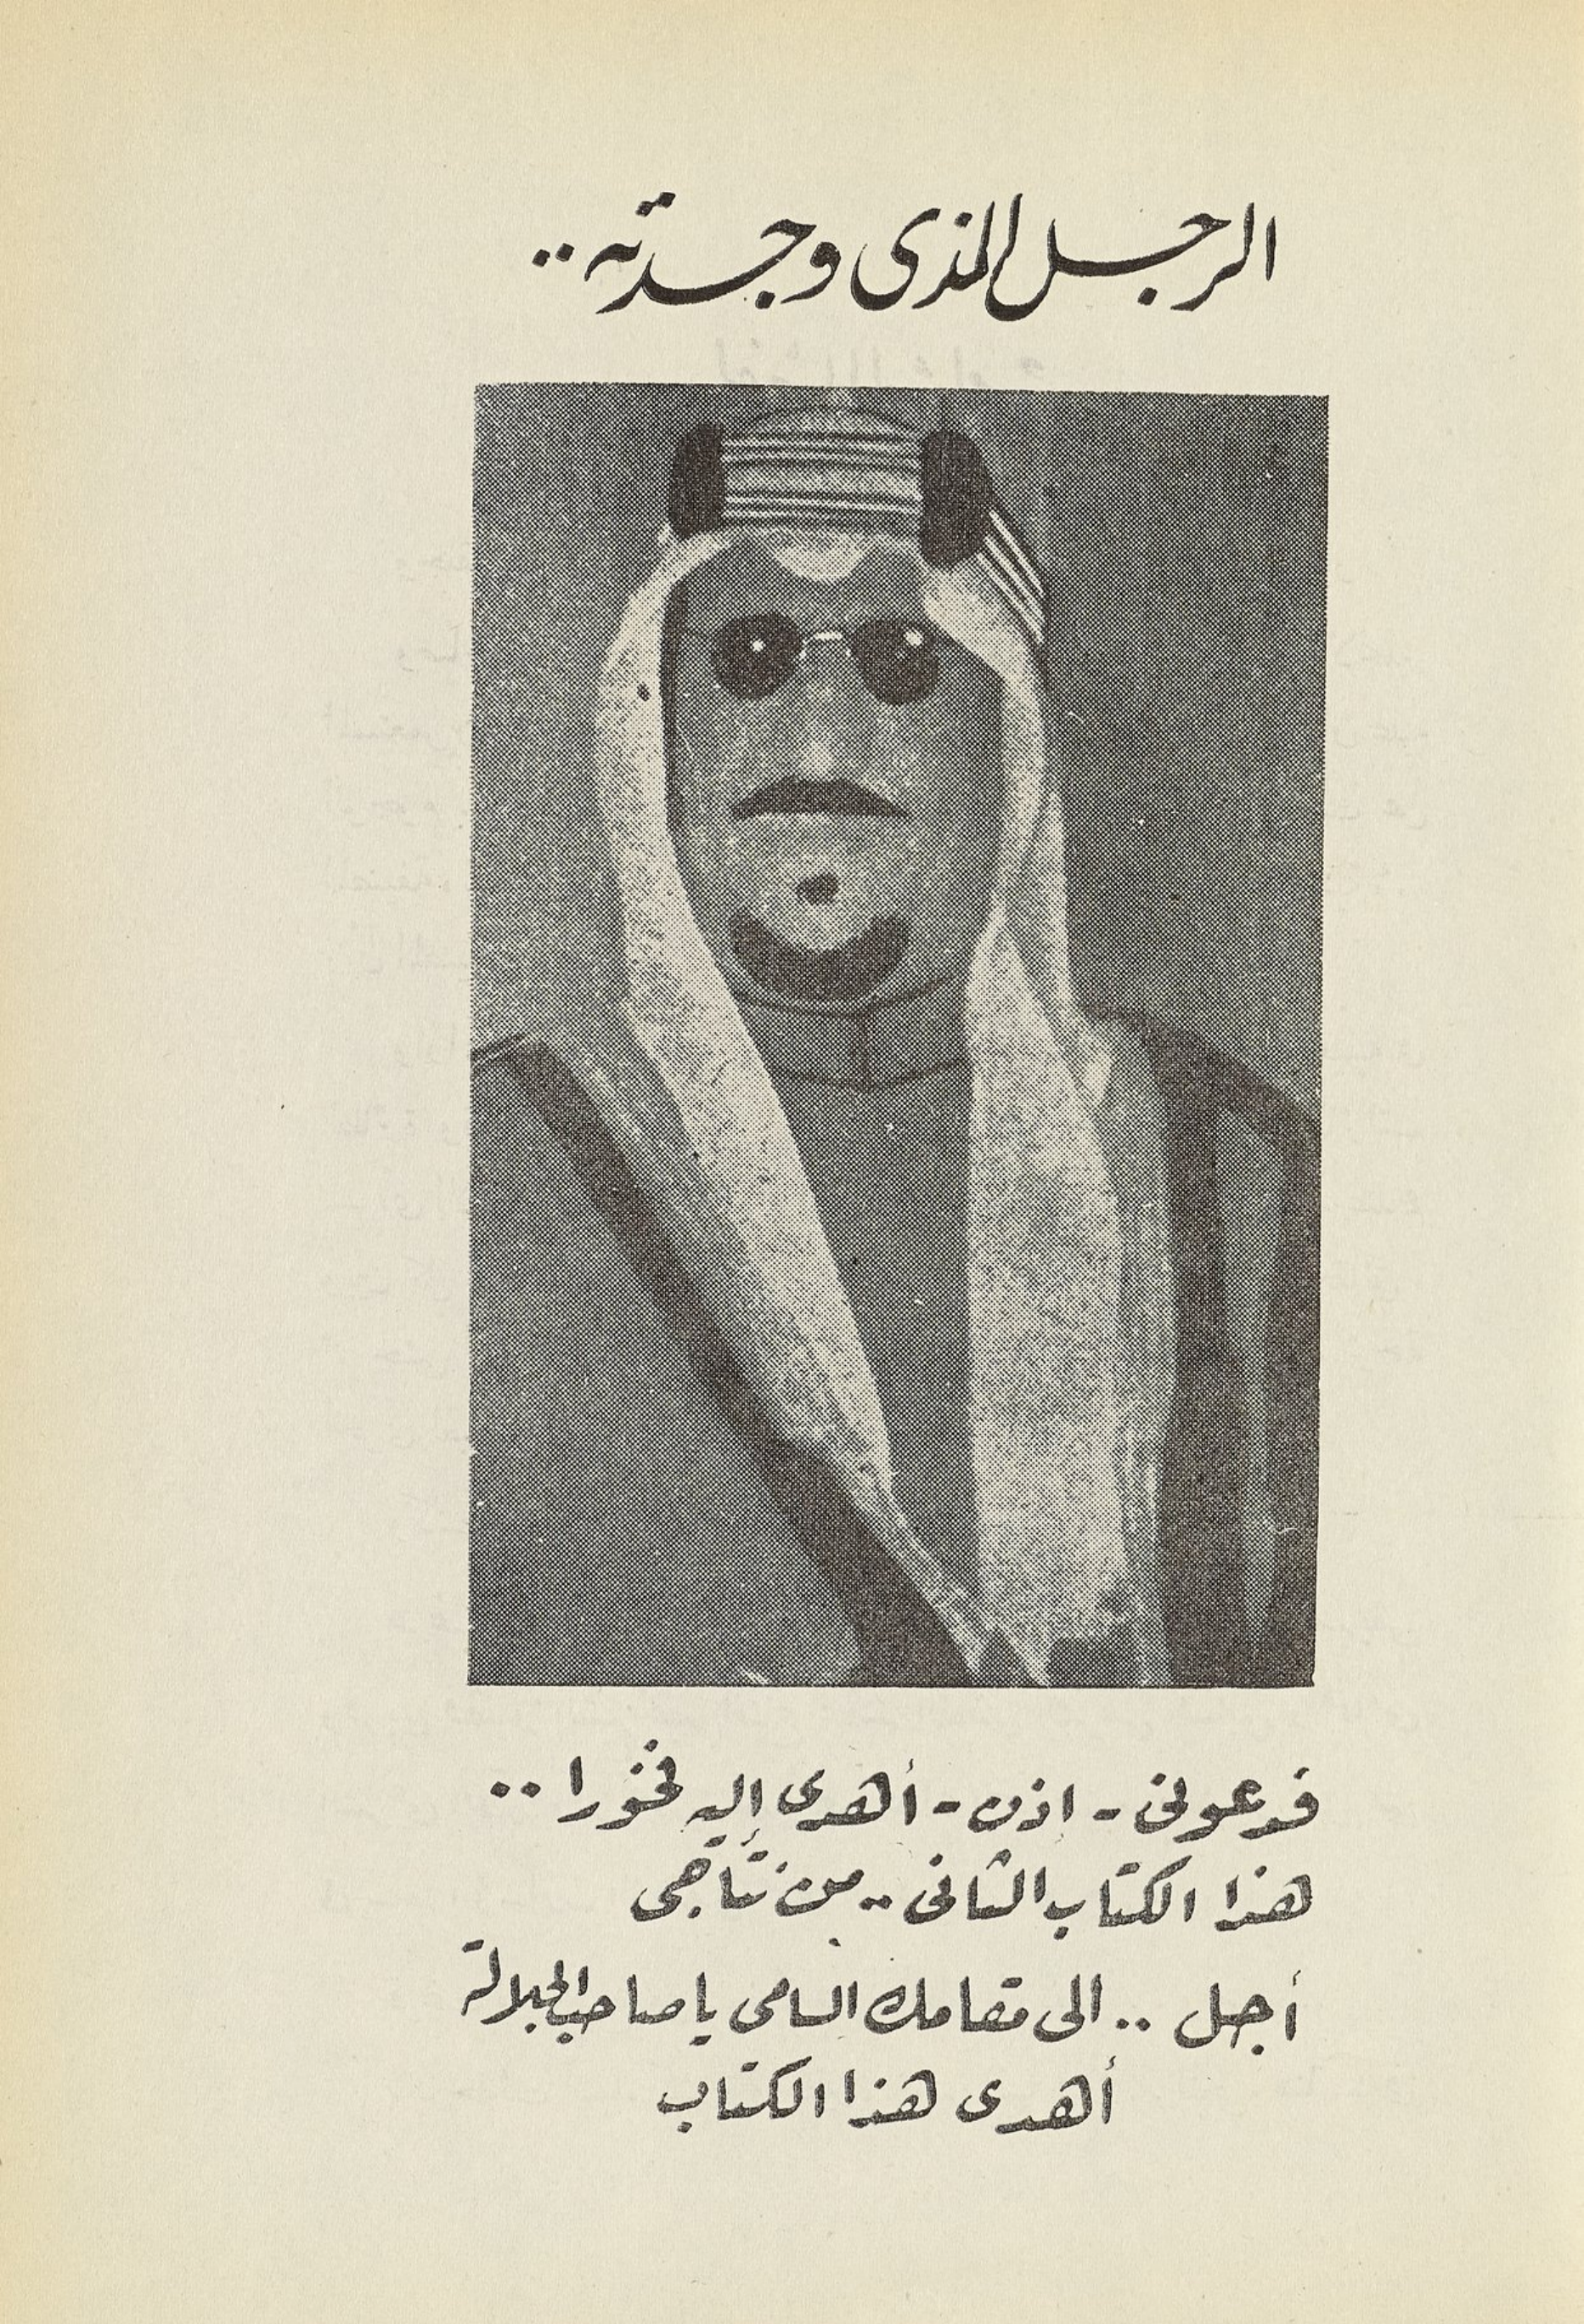 الرجل الذى وجدته ..
فدعونى - اذن - أهدى إليه فخورا ..
هذا الكتاب الثانى .. من نتاجى
أجل .. الى مقامك السامى يا صاحب الجلالة
أهدى هذا الكتاب